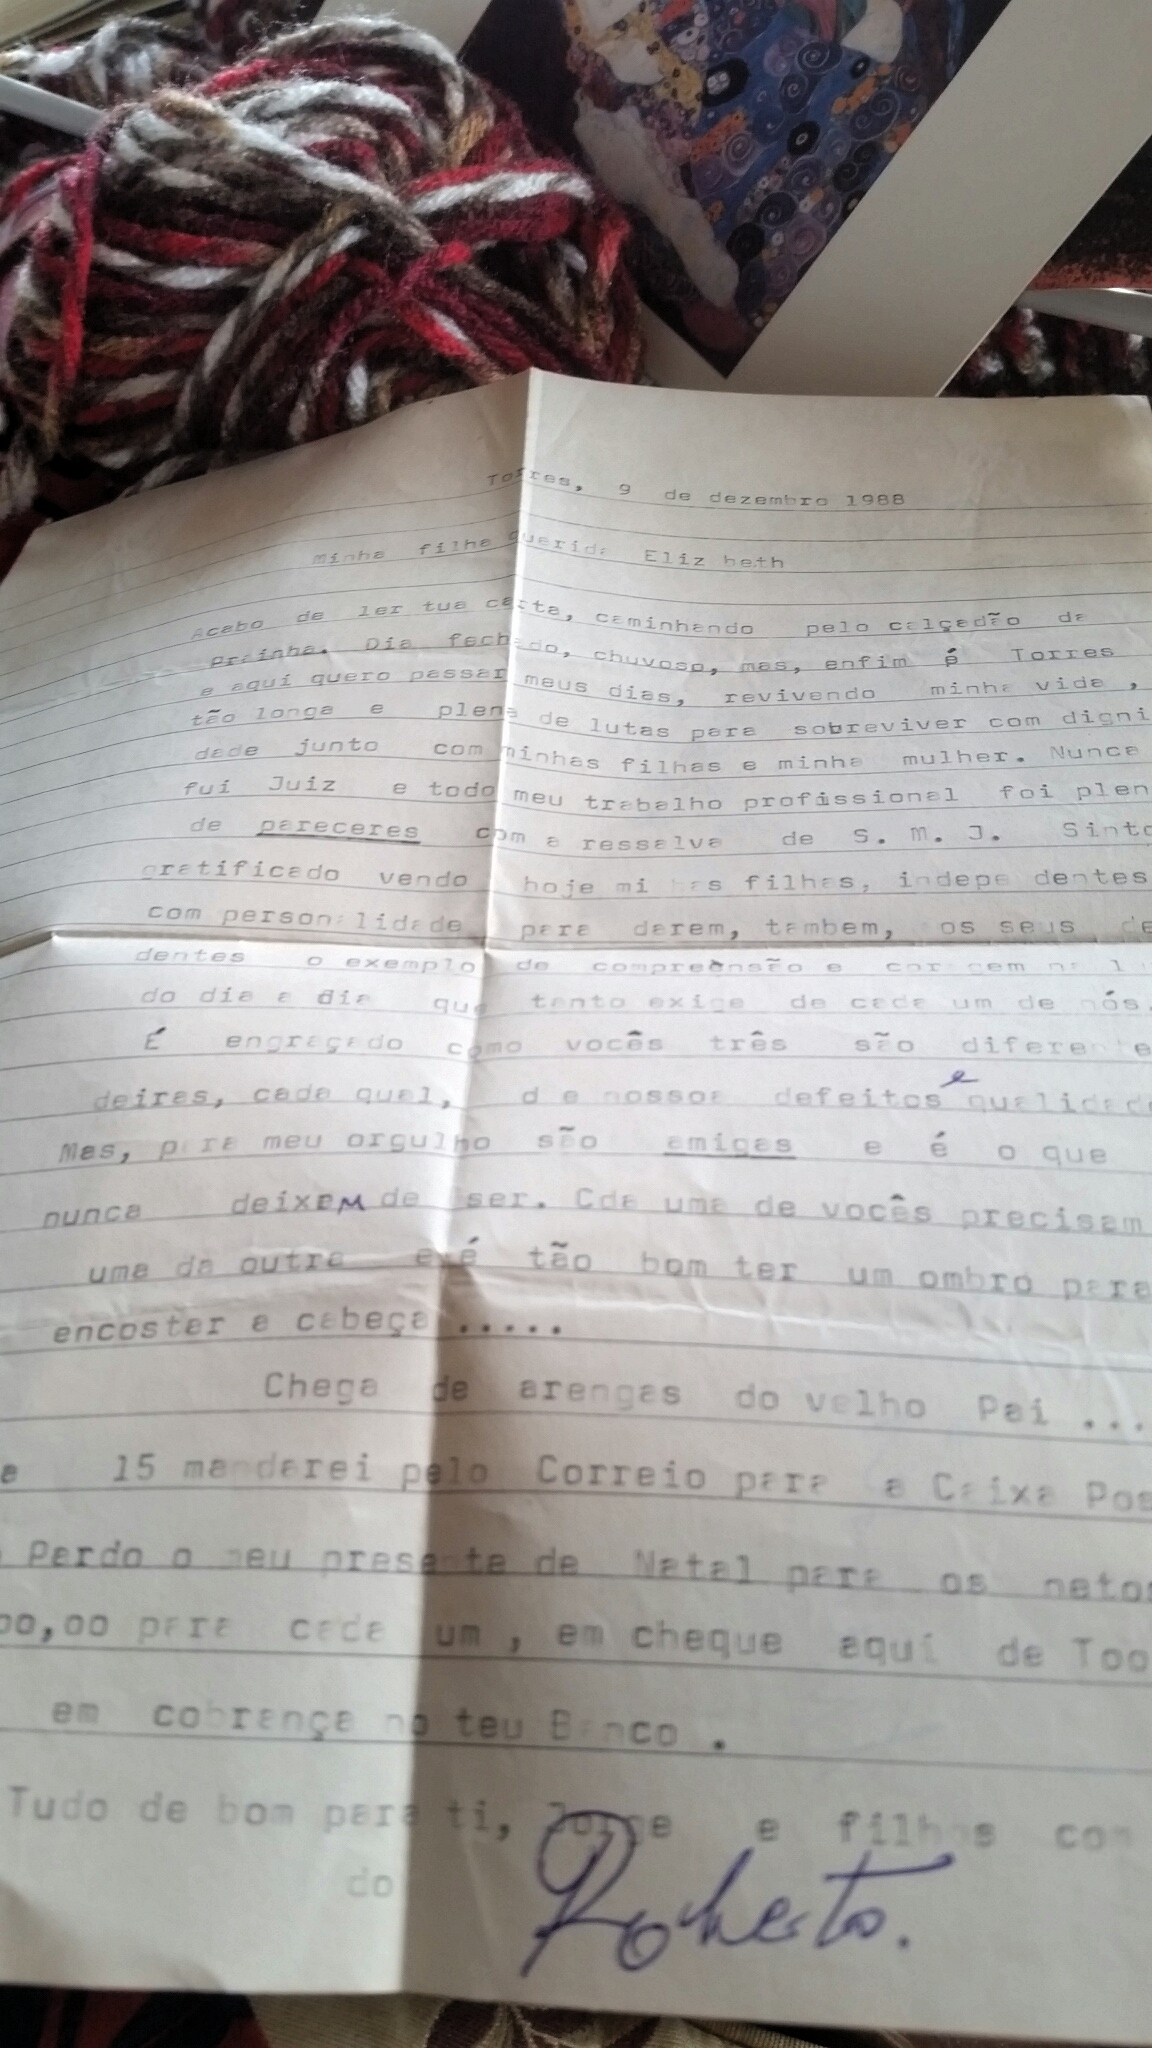 Torres, 9 de dezembro 1988
minha filha querida Eliz beth
Acabo de ler tua carta, caminhando pelo calçadão da
prainha. Dia fechado, chuvoso, mas, enfim é Torres
e aqui quero passar meus dias, revivendo minha vida ,
tão longa e plena de lutas para sobreviver com digni
dade junto com minhas filhas e minha mulher. Nunca
fui Juiz e todo meu trabalho profissional foi plen
de pareceres com a ressalva de S. M. J. Sinto
gratificado vendo hoje mi has filhas, indepe dentes
com personalidade para darem, tambem, os seus de
dentes o exemplo de compreensão e
do dia a dia que tanto exige de cada um de nós.
É engraçado como vocês três são diferente
deiras, cada qual, d e nossos defeitos e qualidad
Mas, para meu orgulho são amigas e é o que
nunca deixem de ser. Cda uma de vocês precisam
uma da outra e é tão bom ter um ombro para
encostar a cabeça .....
Chega de arengas do velho Pai ...
a 15 mandarei pelo Correio para a Caixa Pos
Pardo o meu presente de Natal para os netos
00,00 para cada um , em cheque aqui de Too
em cobrança no teu Banco .
Tudo de bom para ti, Jorge e filhos com
do Roberto.